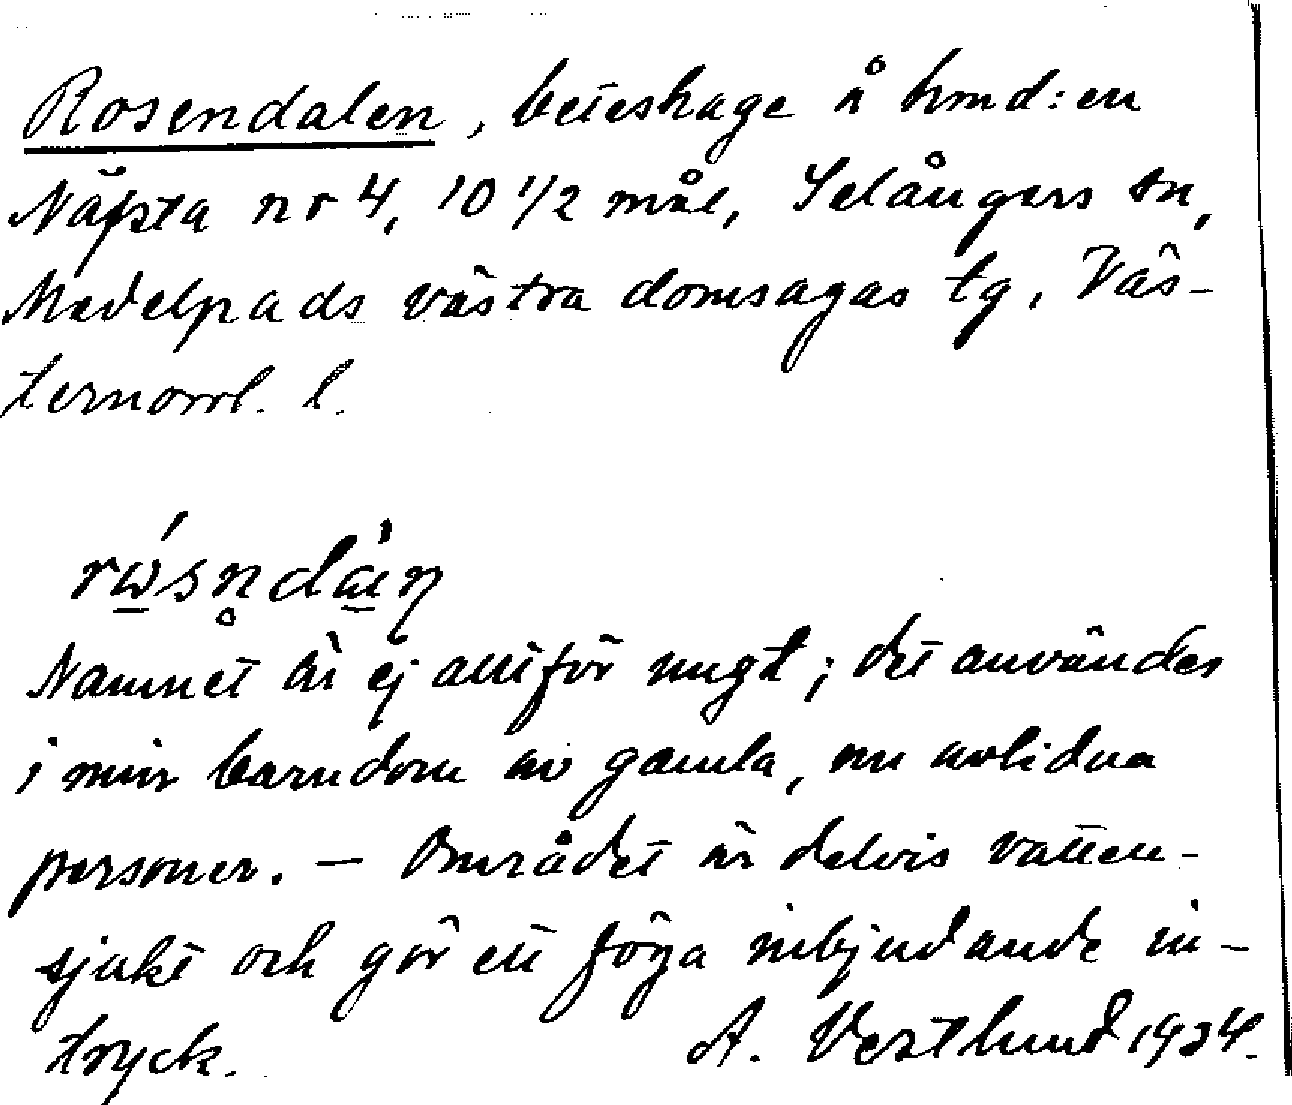 Rosendalen, beteshage å hmd:en
Näfsta nr 4, 10 1/2 mål, Selångers sn,
Medelpads västra domsagas tg, Väs-
ternorrl. l.
Namnet är ej alltför ungt; det användes
i min barndom av gamla, nu avlidna
personer. — Området är delvis vatten-
sjukt och gör ett föga inbjudande in-
tryck. A. Vestlund 1934.